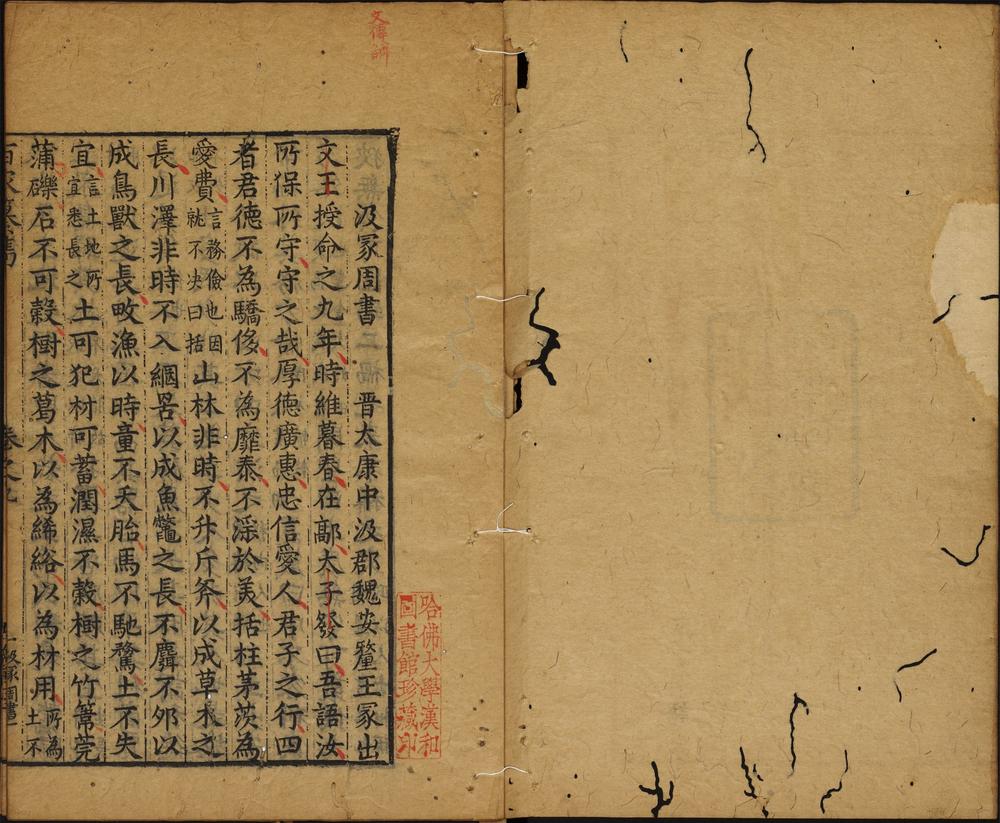 汲冢周書 晋太康中汲郡魏安釐王冢出
文王授命之九年時維暮春在鄗太子發曰吾語汝
所保所守守之哉厚德廣惠忠信愛人君子之行四
者君德不為驕侈不為靡泰不滛於美括柱茅茨為
愛費言務儉也因就不决曰括山林非時不升斤斧以成草木之
長川澤非時不入網罟以成魚鼈之長不麛不夘以
成鳥獸之長畋漁以時童不夭胎馬不馳騖土不失
宜言土地所宜悉長之土可犯材可蓄潤濕不穀樹之竹葦莞
蒲礫石不可穀樹之葛木以為絺綌以為材用所為土不
卷之九
汲冢周書
哈佛大學漢和
圖書館珍藏印